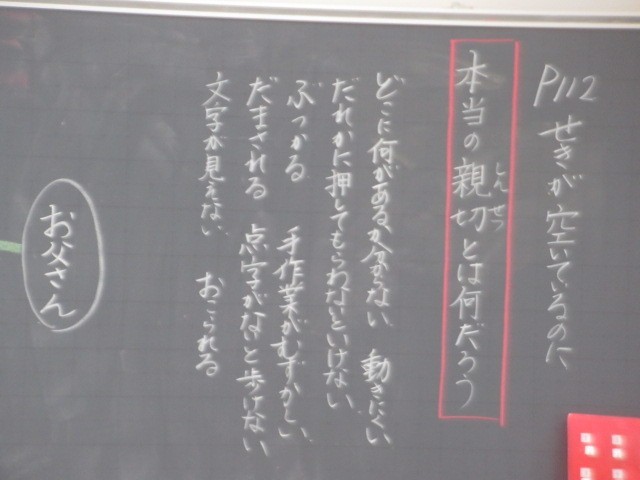 P112 せきが空いているのに
本当の親切とは何だろう
しんせつ
どこに何があるか分からない 動きにくい
だれかに押してもらわないといけない
ぶつかる 手作業がむずかしい
だまされる 点字がないと歩けない
文字が見えない おこられる
お父さん